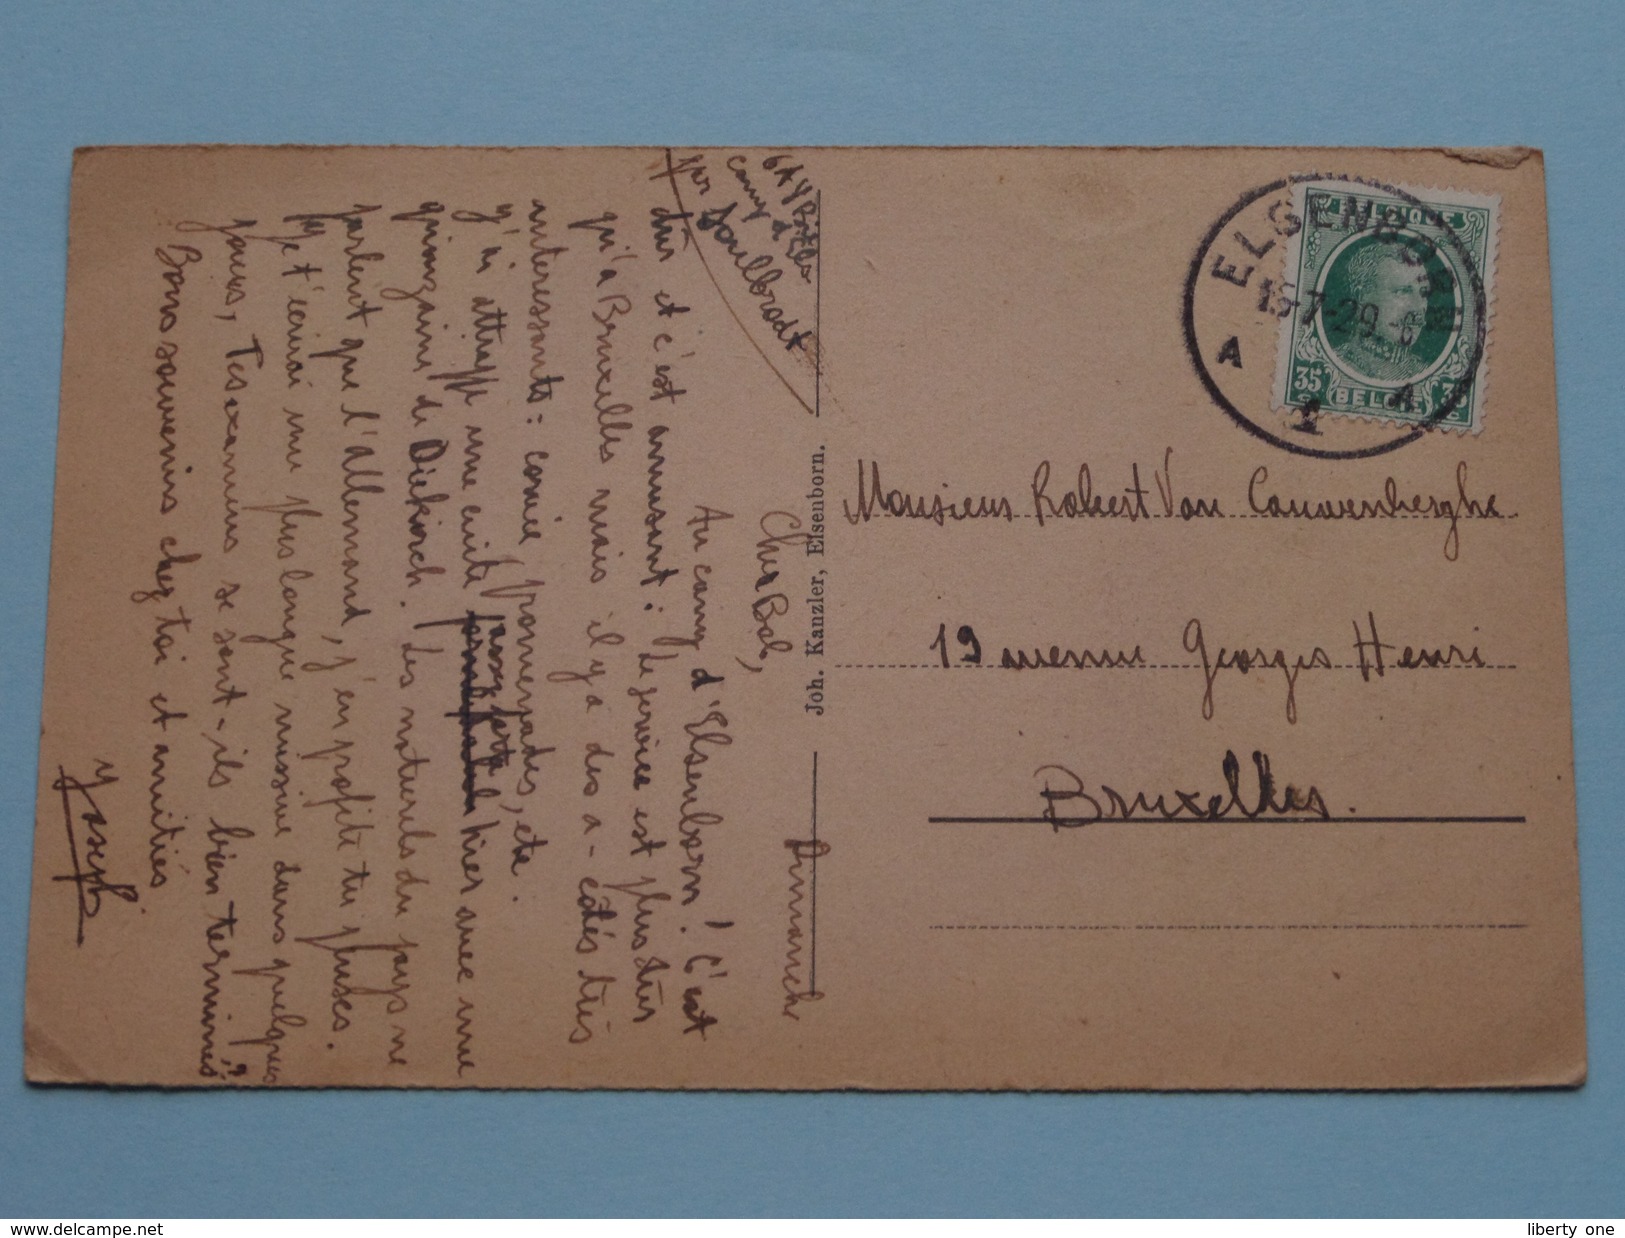 Dimanche
Cher Bob,
Au camp d'Elsenborn! C'est
dur et c'est amusant: le service est plus dur
qu'à Bruxelles mais il y a des à-côtés très
intéressants: corvée, promenades, etc.
J'ai attrapé une cuite assez forte hier avec une
quinzaine de Diekirch. Les naturels du pays ne
parlent que l'allemand, j'en profite tu penses.
Je t'écrirai une plus longue missive dans quelques
jours, Tes examens se sont-ils bien terminés?
Bons souvenirs chez toi et amitiés
Joseph
camp d
par
Joh. Kanzler, Elsenborn.
ELSENBORN
15-7-29
A A
1
BELGIQUE
35 35
BELGIË
Monsieur Robert Van Cauwenberghe
19 avenue Georges Henri
Bruxelles.
www.delcampe.net
liberty one